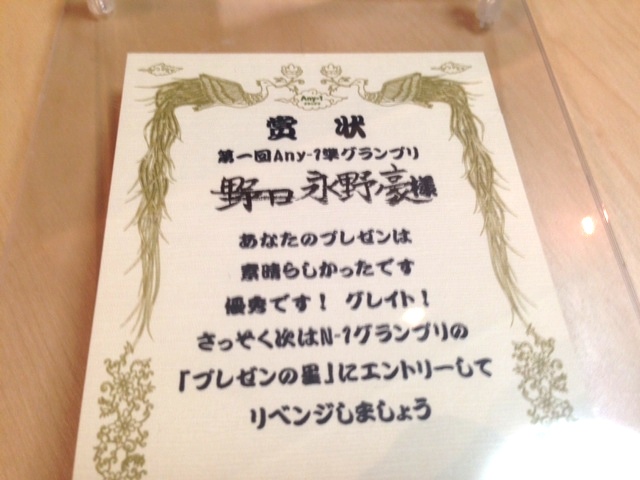 Any-1
賞状
第一回Any-1準グランプリ
野口 永野豪様
あなたのプレゼンは
素晴らしかったです
優秀です！ グレイト！
さっそく次はN-1グランプリの
「プレゼンの星」にエントリーして
リベンジしましょう